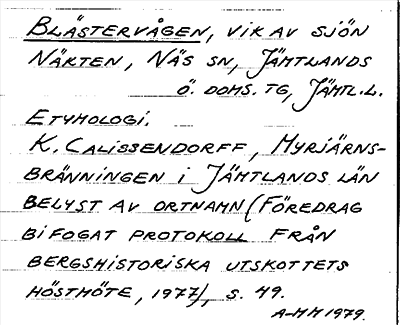 BLÄSTERVÅGEN, VIK AV SJÖN
NÄKTEN, NÄS SN, JÄMTLANDS
Ö. DOMS. TG, JÄMTL.L.
ETYMOLOGI.
K. CALISSENDORFF, MYRJÄRNS-
BRÄNNINGEN I JÄMTLANDS LÄN
BELYST AV ORTNAMN (FÖREDRAG
BIFOGAT PROTOKOLL FRÅN
BERGSHISTORISKA UTSKOTTETS
HÖSTMÖTE, 1977), S. 49.
A-MH 1979.